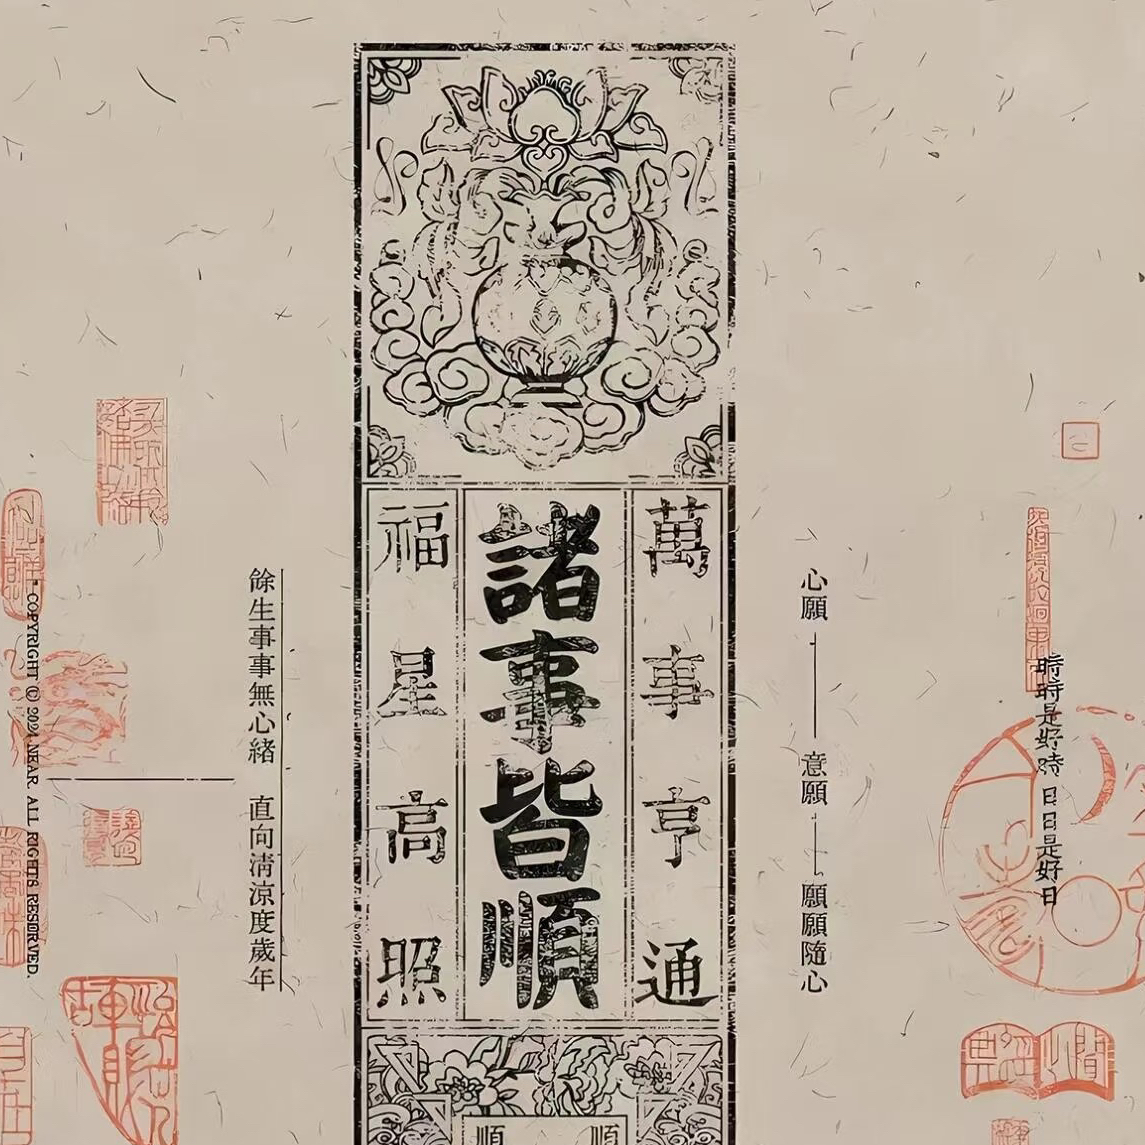 時時是好時 日日是好日
心願 — 意願 — 願願隨心
萬事亨通
諸事皆順
福星高照
順 順
餘生事事無心緒 直向清涼度歲年
COPYRIGHT © 2024 NEAR. ALL RIGHTS RESERVED.